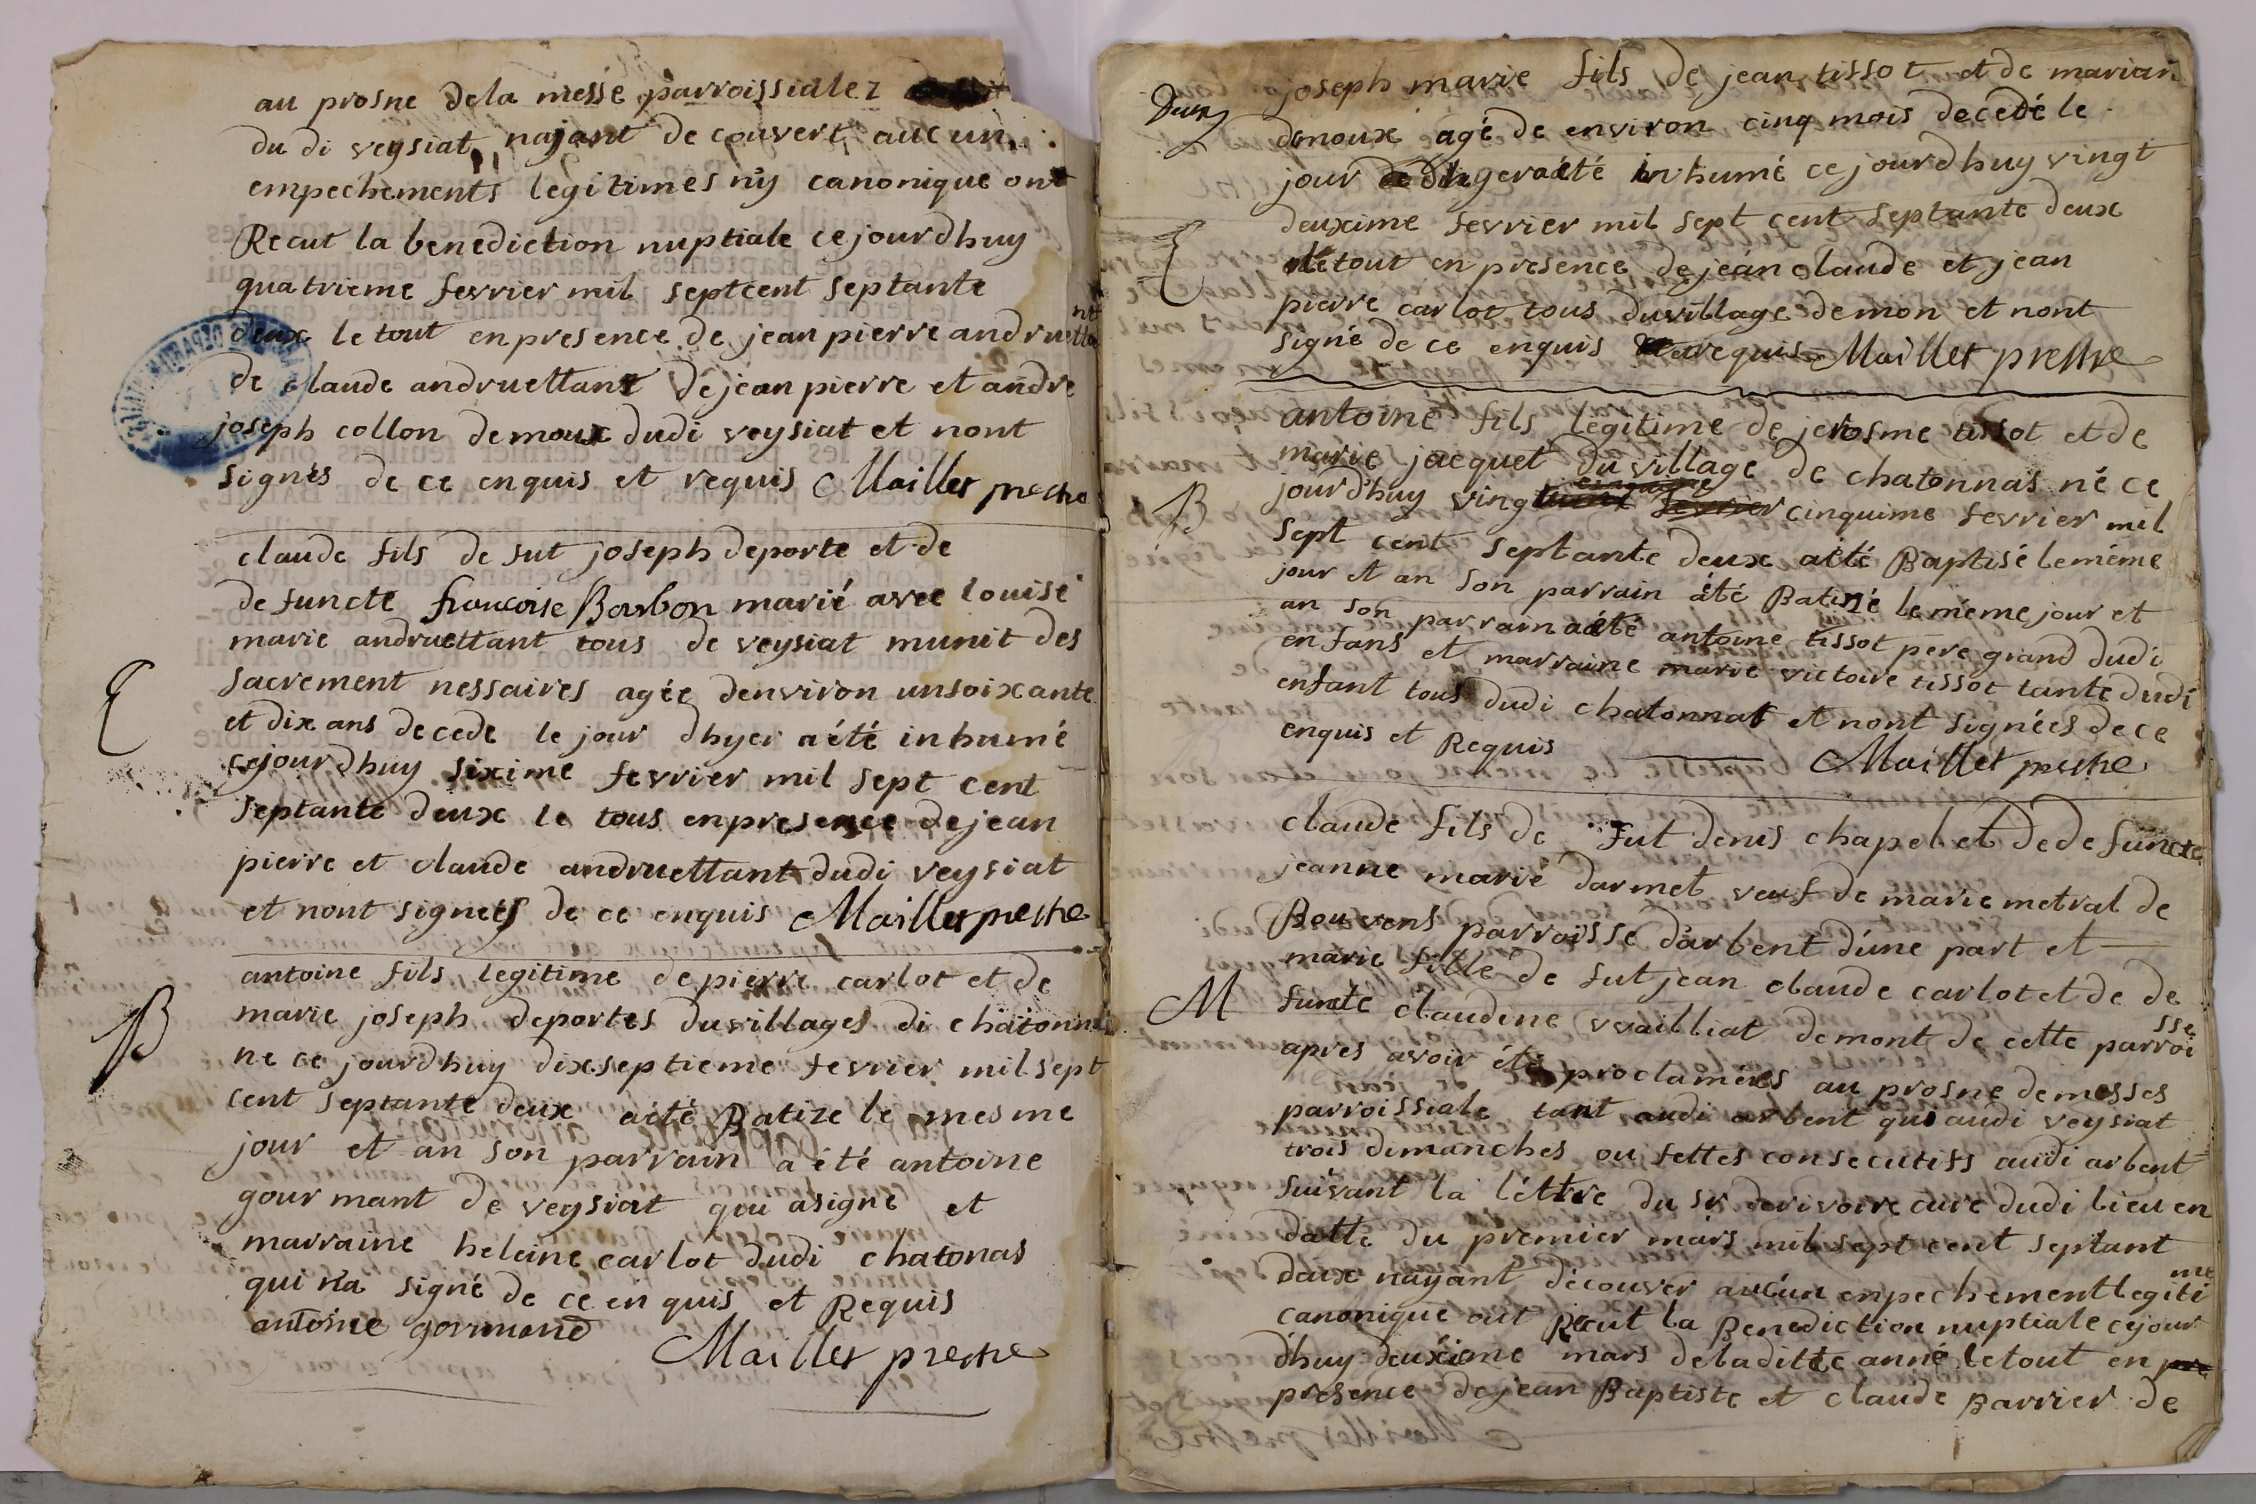 au prosne dela messe parroissialez
du di veysiat najant de couvert aucun
empechements legitimes n'y canonique ont
Recut la benediction nuptiale cejourdhuy
quatrieme fevrier mil septcent septante
deux le tout enpresence de jean pierre andruetta nt
de claude andruettant de jean pierre et andre
joseph collon demoux dudi veysiat et nont
signés de ce enquis et requis Maillet prestre
claude fils de fut joseph deporte et de
defuncte francoise Borbon marié avec louise
marie andruettant tous de veysiat munit des
sacrement nessaires agée denviron unsoixante
et dix ans decede le jour dhyer aété inhumé
E
cejourdhuy sixime fevrier mil sept cent
septante deux le tous enpresence dejean
pierre et claude andruettant dudi veysiat
et nont signees de ce enquis Maillet prestre
antoine fils legitime de pierre carlot et de
marie joseph deportes duvillages di chatonna
B
ne ce jourdhuy dixseptieme fevrier milsept
cent septante deux aété Batize le mesme
jour et an son parrain a été antoine
gourmant de veysiat qou asigne et
marraine heleine carlot dudi chatonas
qui na signé de ce en quis et Requis
antoine gormand
Maillet prestre
joseph marie fils de jean tissot et de marian
demoux agé de environ cinq mois decedé le
jour dhyer aété inhumé cejourdhuy vingt
deuxime fevrier mil sept cent septante deux
E
le tout en presence de jean claude et jean
pierre carlot tous duvillage demon et nont
signé de ce enquis requis Maillet prestre
antoine fils legitime de jerosme tissot et de
marie jacquet du village de chatonnas né ce
jourdhuy vingt cinquime fevrier mil
B
sept cent septante deux aété Baptisé lemême
jour et an son parrain été Batizé le meme jour et
an son parrain aété antoine tissot pere grand dudi
enfans et marraine marie victoire tissot tante dudi
enfant tous dudi chatonnas et nont signées de ce
enquis et Requis Maillet prestre
claude fils de fut denis chapel et de defuncte
jeanne marié darmet veuf de marie metral de
Bouvens parroisse d'arbent d'une part et
marie fille de fut jean claude carlot et de de
M
functe claudine vvailliat demont de cette parroi sse
apres avoir été proclamées au prosne de messes
parroissiale tant audi arbent que audi veysiat
trois dimanches ou fettes consecutifs audi arbent
suivant la lettre du sr derivoire curé dudi lieu en
datte du premier mars mil sept cent septant
deux nayant découver aucun enpechement legiti me
canonique ont Recut la Benediction nuptiale cejour
d'huy deuxieme mars deladitte anné le tout en
presence de jean Baptiste et claude Barrier de